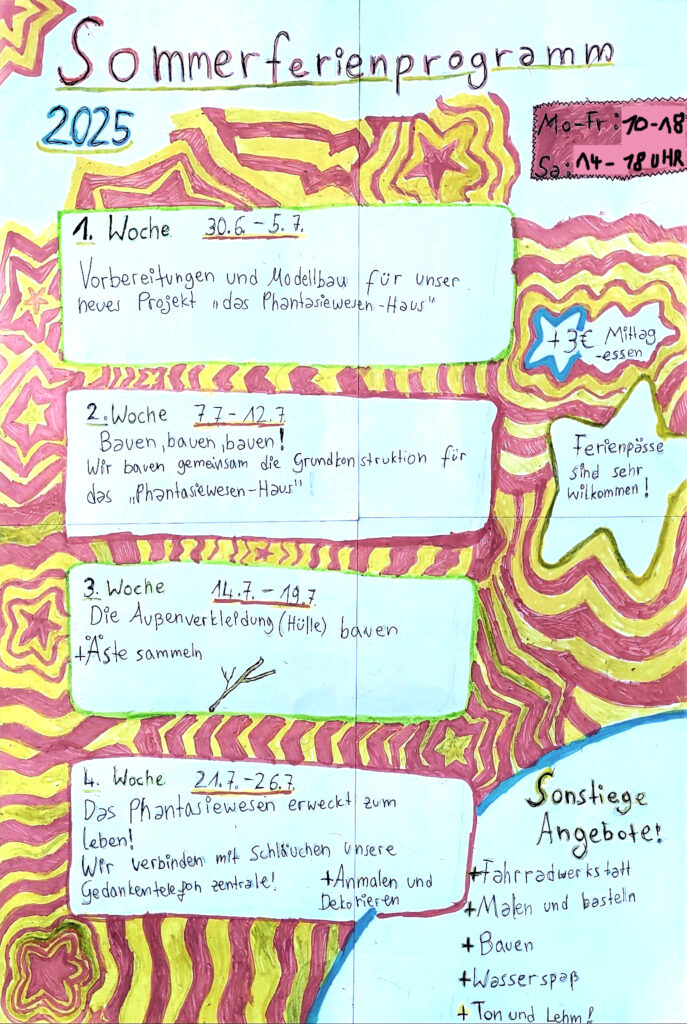 Sommerferienprogramm
2025
Mo-Fr: 10-18
Sa: 14-18 UHR
1. Woche 30.6. - 5.7.
Vorbereitungen und Modellbau für unser
neues Projekt „das Phantasiewesen-Haus"
+3€ Mittag
-essen
2. Woche 7.7 - 12.7
Bauen, bauen, bauen!
Wir bauen gemeinsam die Grundkonstruktion für
das „Phantasiewesen-Haus"!
Ferienpässe
sind sehr
willkommen!
3. Woche 14.7. - 19.7
Die Außenverkleidung (Hülle) bauen
+Äste sammeln
4. Woche 21.7. - 26.7
Das Phantasiewesen erweckt zum
leben!
Wir verbinden mit Schläuchen unsere
Gedankentelefon zentrale!
+Anmalen und
Dekorieren
Sonstiege
Angebote!
+Fahrradwerkstatt
+Malen und basteln
+Bauen
+Wasserspaß
+Ton und Lehm!